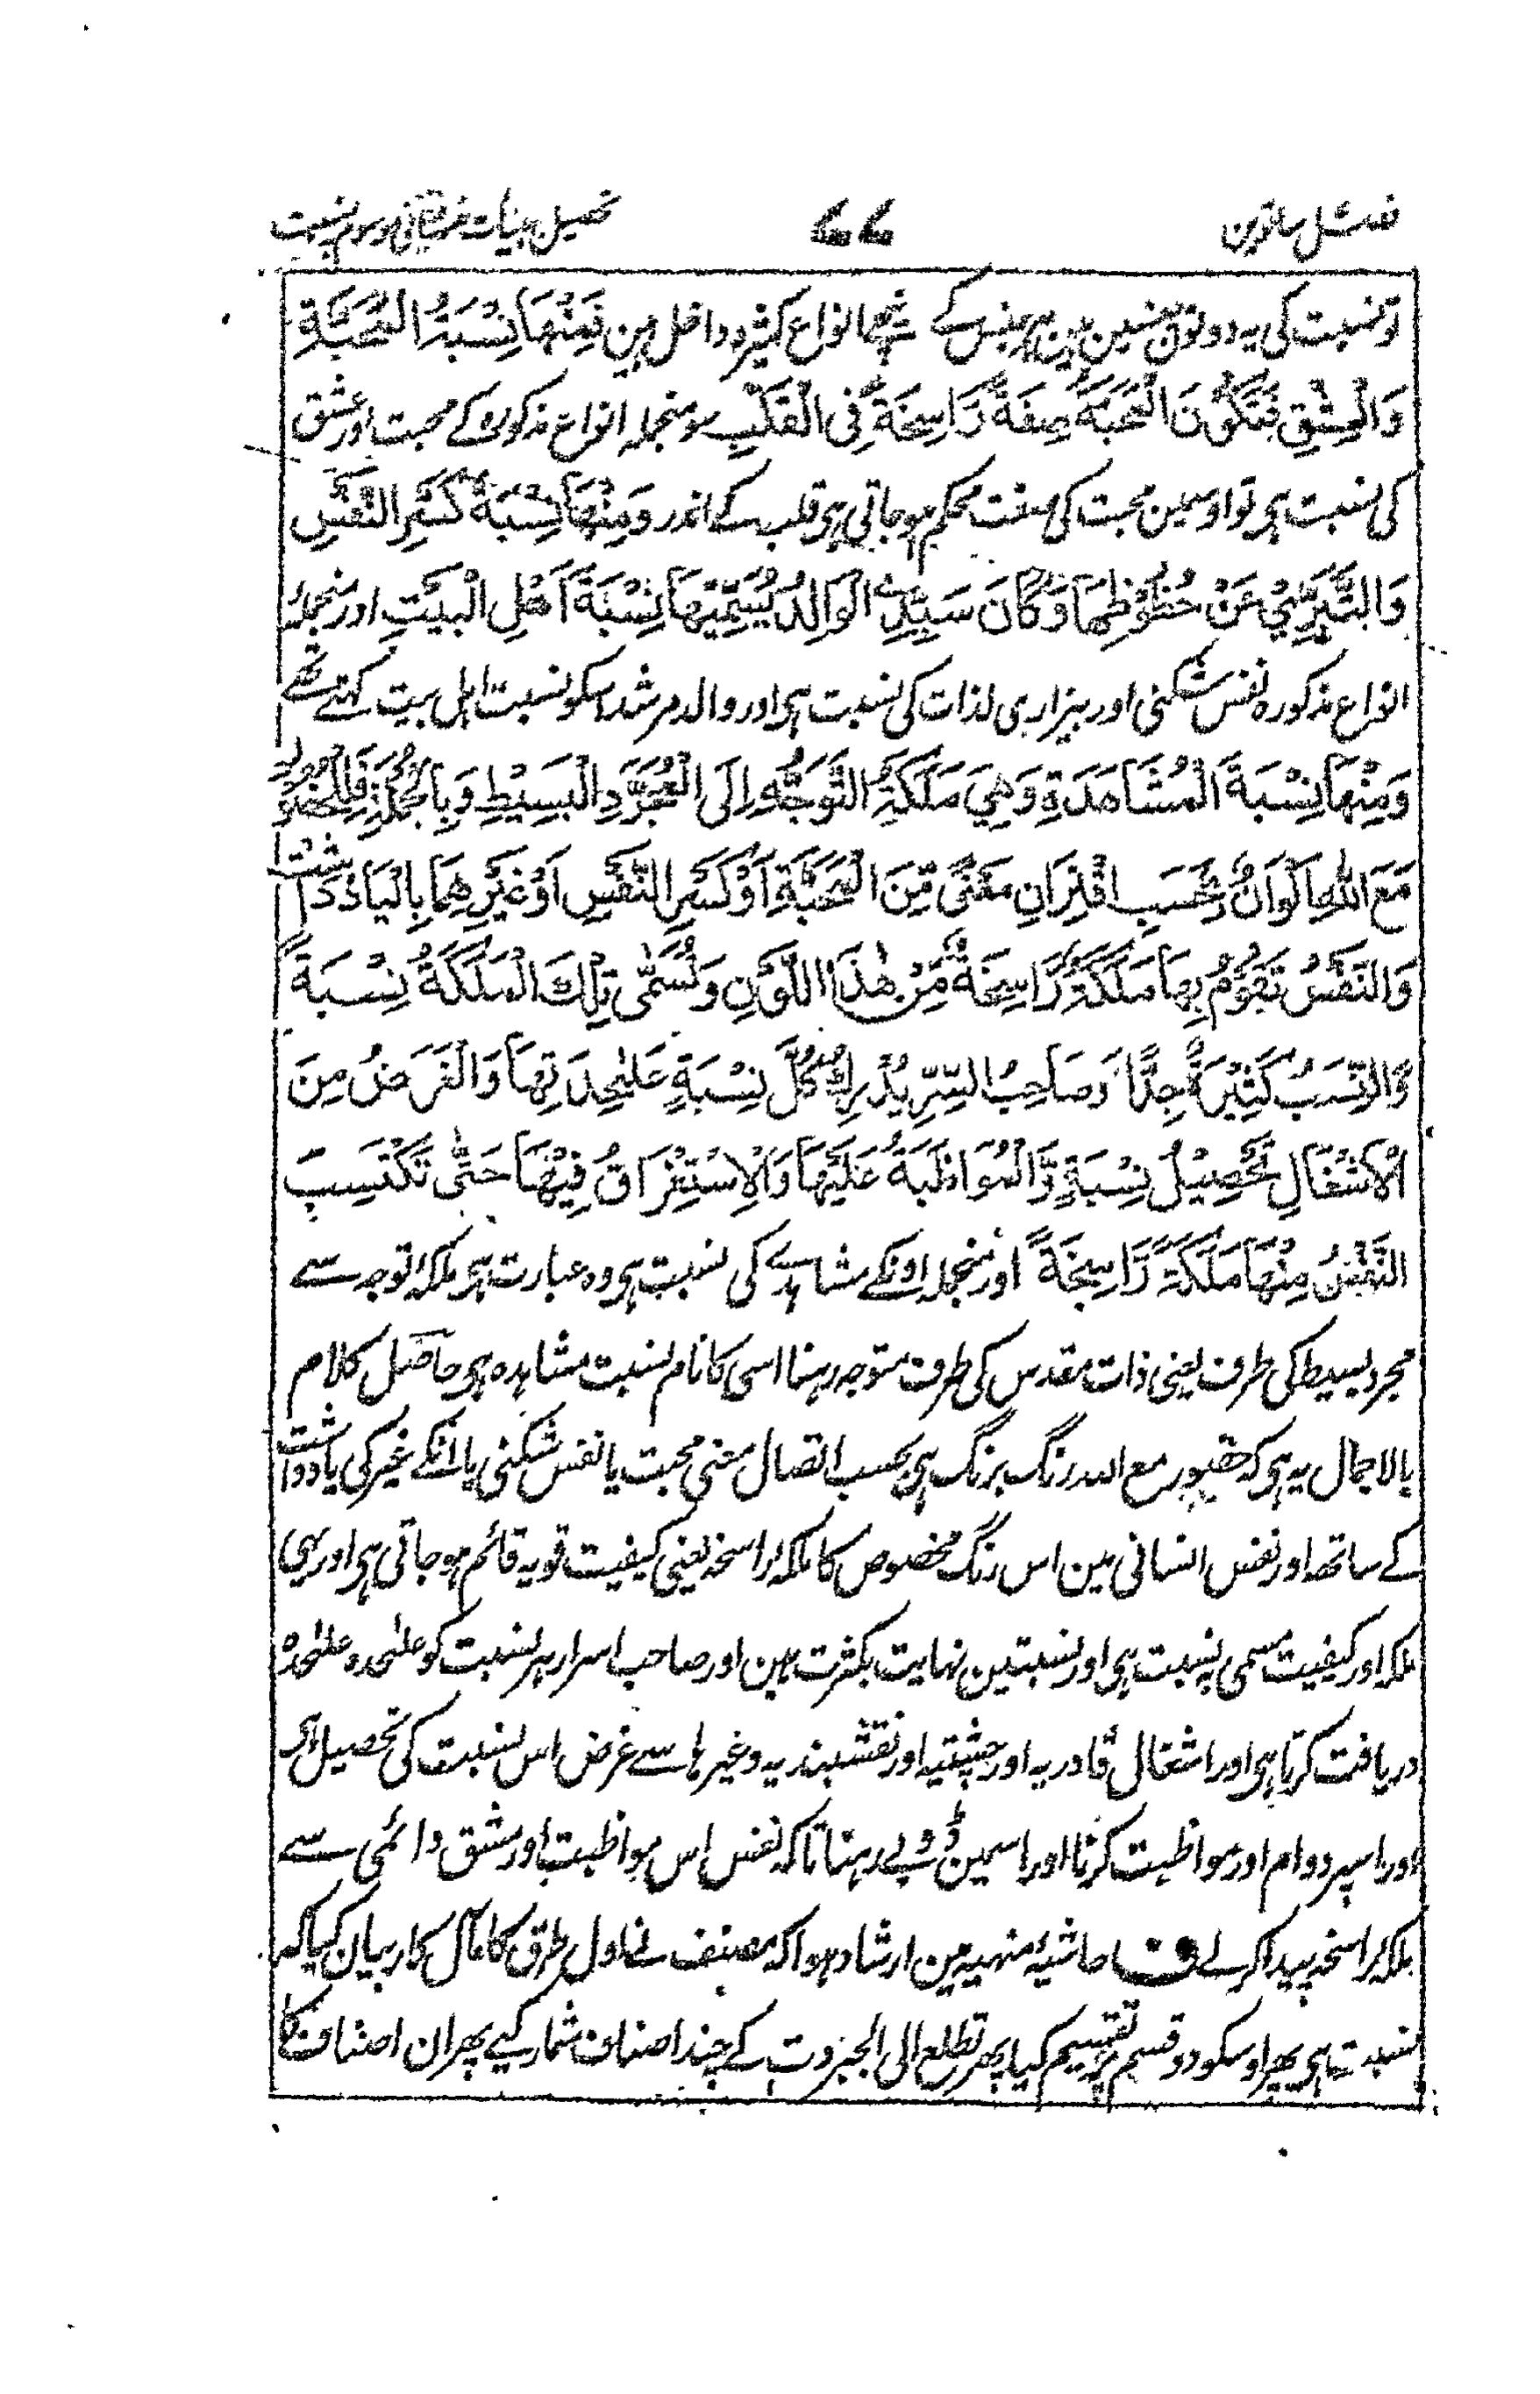 فصل ساتوین ۷۷ تحصیل ہیئات نفسانی موسوم بنسبت
تو نسبت کی یہ دونون جنسین ہین ہر جنس کے نیچے انواع کثیرہ داخل ہین فَمِنْهَا نِسْبَةُ الْمَحَبَّةِ
وَالْعِشْقِ فَتَكُوْنُ الْمَحَبَّةُ صِفَةً رَّاسِخَةً فِی الْقَلْبِ سو منجملہ انواع مذکورہ کے محبت اور عشق
کی نسبت ہی تو اوسمین محبت کی صفت محکم ہو جاتی ہی قلب کے اندر وَمِنْهَا نِسْبَةُ كَسْرِ النَّفْسِ
وَالتَّبَرِّيْ عَنْ حُظُوْظِهَا وَكَانَ سَيِّدِی الْوَالِدُ يُسَمِّيْهَا نِسْبَةَ اَهْلِ الْبَيْتِ اور منجملہ
انواع مذکورہ نفس شکنی اور بیزاری لذات کی نسبت ہی اور والد مرشد اسکو نسبت اہل بیت کہتے تھے
وَمِنْهَا نِسْبَةُ الْمُشَاهَدَةِ وَهِيَ مَلَكَةُ التَّوَجُّهِ اِلَی الْمُجَرَّدِ الْبَسِيْطِ وَبِالْجُمْلَةِ فَالْحُضُوْرُ
مَعَ اللهِ اَلْوَانٌ بِحَسَبِ اقْتِرَانِ مَعْنًی مِّنَ الْمَحَبَّةِ اَوْ كَسْرِ النَّفْسِ اَوْ غَيْرِهِمَا بِالْيَادْدَاشْت
وَالنَّفْسُ تَقُوْمُ بِهَا مَلَكَةٌ رَّاسِخَةٌ مِّنْ هٰذَا اللَّوْنِ وَتُسَمّٰی تِلْكَ الْمَلَكَةُ نِسْبَةً
وَّالنِّسَبُ كَثِيْرَةٌ جِدًّا وَصَاحِبُ السِّرِّ يُدْرِكُ كُلَّ نِسْبَةٍ عَلٰیحِدَتِهَا وَالْغَرَضُ مِنَ
الْاَشْغَالِ تَحْصِيْلُ نِسْبَةٍ وَّالْمُوَاظَبَةُ عَلَيْهَا وَالْاِسْتِغْرَاقُ فِيْهَا حَتّٰی تَكْتَسِبَ
النَّفْسُ مِنْهَا مَلَكَةً رَّاسِخَةً اور منجملہ اونکے مشاہدے کی نسبت ہی وہ عبارت ہی ملکۂ توجہ سے
مجرد بسیط کی طرف یعنی ذات مقدس کی طرف متوجہ رہنا اسی کا نام نسبت مشاہدہ ہی حاصل کلام
بالاجمال یہ ہی کہ حضور مع اللہ رنگ برنگ ہی بحسب اتصال معنی محبت یا نفس شکنی یا انکے غیر کی یادداشت
کے ساتھ اور نفس انسانی مین اس رنگ مخصوص کا ملکۂ راسخہ یعنی کیفیت قویہ قائم ہو جاتی ہی اور یہی
ملکہ اور کیفیت مسمی بہ نسبت ہی اور نسبتین نہایت بکثرت ہین اور صاحب اسرار ہر نسبت کو علٰحدہ علٰحدہ
دریافت کرتا ہی اور اشغال قادریہ اور چشتیہ اور نقشبندیہ وغیرہا سے غرض اس نسبت کی تحصیل ہی
اور اسپر دوام اور مواظبت کرنا اور اسمین ڈوبے رہنا تاکہ نفس اس مواظبت اور مشق دائمی سے
ملکۂ راسخہ پیدا کرلے ف حاشیۂ منہیہ مین ارشاد ہوا کہ مصنف نے اول طرق کا مآل کار بیان کیا کہ
نسبت ہی پھر اوسکو دو قسم پر تقسیم کیا پھر تطلع الی الجبروت کے چند اصناف شمار کیے پھر ان اصناف کا